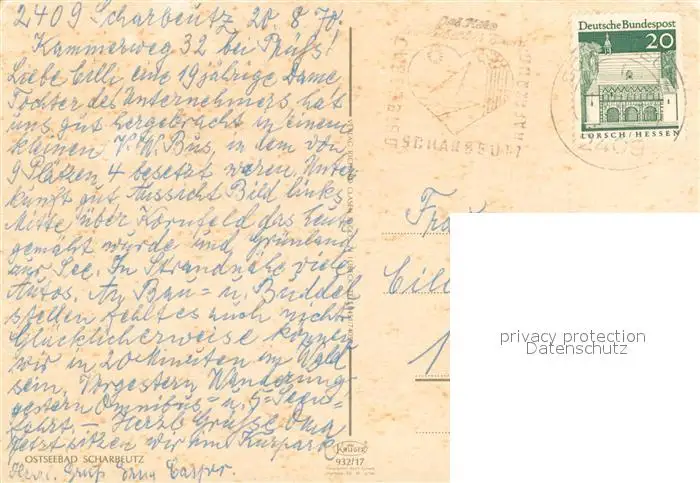 2409 Scharbeutz 20.8.70.
Kammerweg 32 bei Prüß!
Liebe Cilli eine 19 jährige Dame
Tochter des Unternehmers, hat
uns gut hergebracht in einem
kleinen V.W. Bus, in dem von
9 Plätzen 4 besetzt waren. Unter
kunft gut Aussicht Bild links
Mitte über Kornfeld das heute
gemäht wurde und Grünland
zur See. In Strandnähe viele
Autos. An Bau= u. Buddel
stellen fehlt es auch nicht
Glücklicherweise können
wir in 20 Minuten im Wald
sein. Vorgestern Wanderung
gestern Omnibus= u. 5=Seen=
fahrt. — Herzl. Grüße Oma
Jetzt sitzen wir im Kurpark
OSTSEEBAD SCHARBEUTZ
Herzl. Gruß
KRÜGER
932/17
SCHARBEUTZ
Deutsche Bundespost
20
LORSCH/HESSEN
2409
Frau
Cill
1
privacy protection
Datenschutz